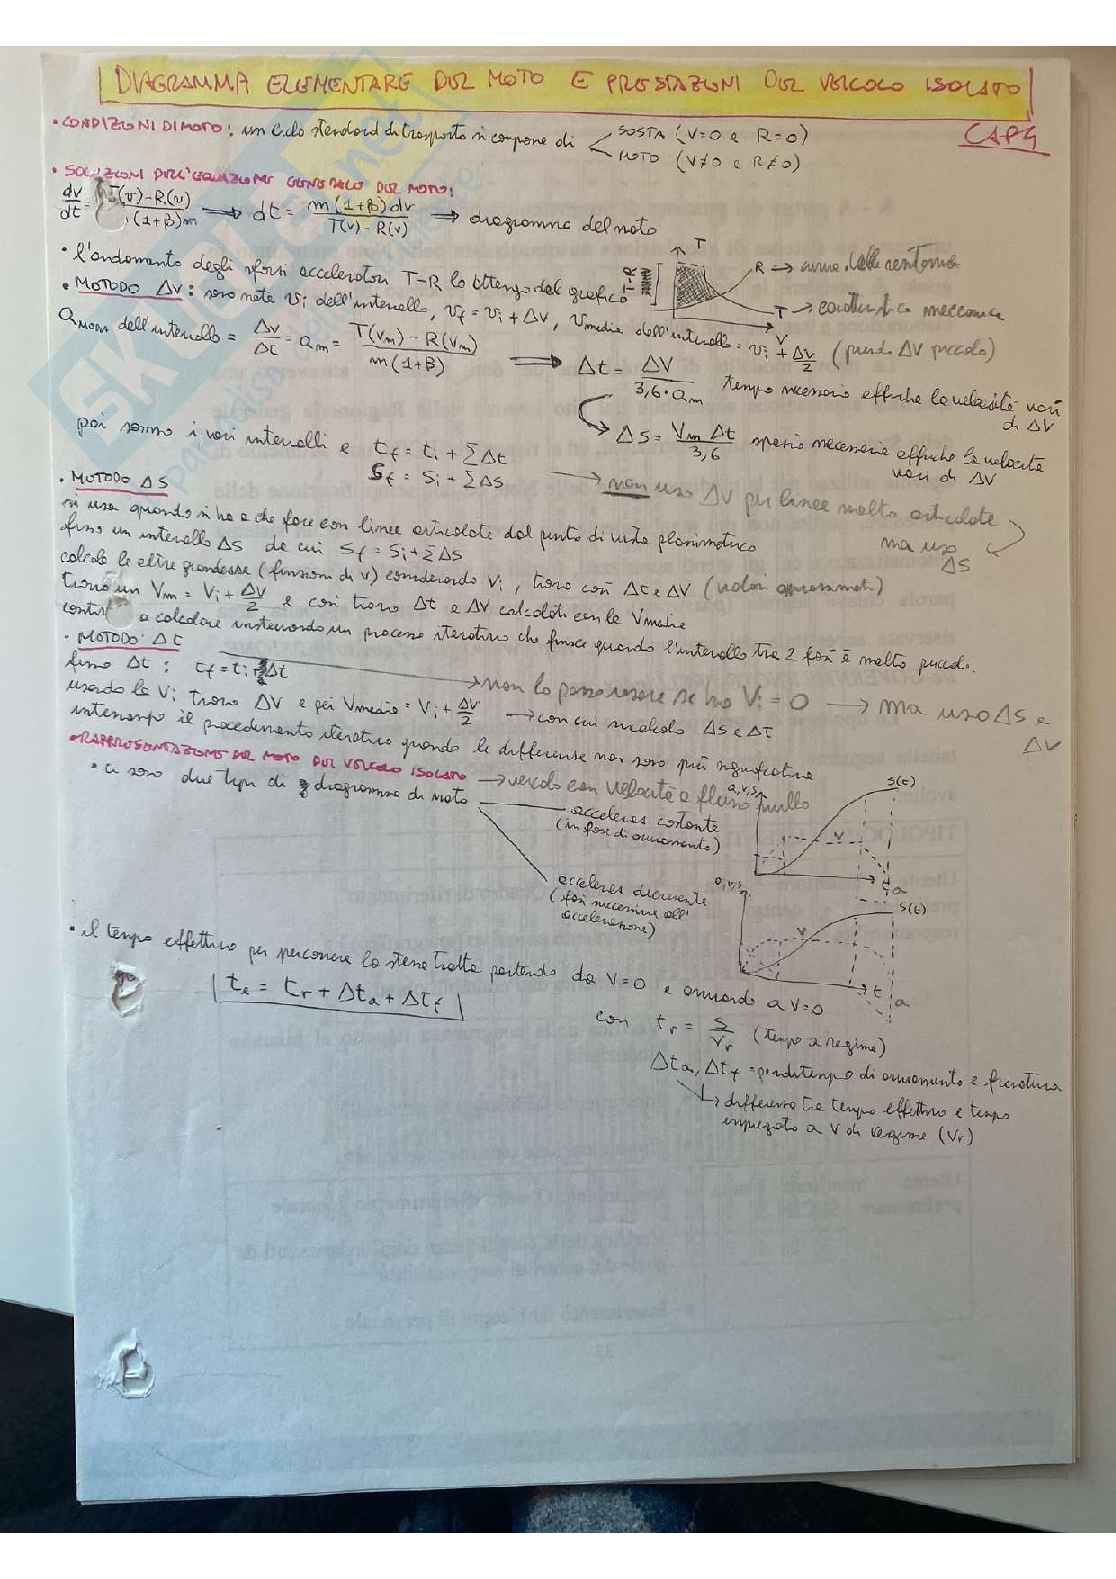 DIAGRAMMA ELEMENTARE DEL MOTO E PRESTAZIONI DEL VEICOLO ISOLATO
CAP4
• CONDIZIONI DI MOTO: un ciclo standard di trasporto si compone di
SOSTA (V=0 e R=0)
MOTO (V≠0 e R≠0)
• SOLUZIONI DELL'EQUAZIONE GENERALE DEL MOTO:
dv/dt = T(v)-R(v) / (1+β)m → dt = m(1+β)dv / T(v)-R(v) → diagramma del moto
• l'andamento degli sforzi acceleratori T-R lo ottengo dal grafico
T
T-R
R → somma delle resistenze
T → caratteristica meccanica
V
• METODO ΔV: sono note vi dell'intervallo, vf = vi + ΔV, Vmedia dell'intervallo = vi + ΔV/2 (prendo ΔV piccolo)
amom dell'intervallo = Δv/Δt = am = T(Vm) - R(Vm) / m(1+β) ⇒ Δt = ΔV / 3,6·am tempo necessario affinche la velocità vari di ΔV
ΔS = Vm Δt / 3,6 spazio necessario affinche la velocità vari di ΔV
poi sommo i vari intervalli e tf = ti + ΣΔt
Sf = Si + ΣΔS
→ non uso ΔV per linee molto articolate
ma uso ΔS
• METODO ΔS
si usa quando si ha a che fare con linee articolate dal punto di vista planimetrico
fisso un intervallo ΔS da cui Sf = Si + ΣΔS
calcolo le altre grandezze (funzioni di v) considerando Vi, trovo così Δt e ΔV (valori approssimati)
trovo un Vm = Vi + ΔV/2 e così trovo Δt e ΔV calcolati con la Vmedia
a calcolare instaurando un processo iterativo che finisce quando l'intervallo tra 2 fasi è molto piccolo.
• METODO Δt
fisso Δt: tf = ti + Δt
→ non lo posso usare se ho Vi = 0 → ma uso ΔS e ΔV
usando la Vi trovo ΔV e poi Vmedio = Vi + ΔV/2 → con cui ricalcolo ΔS e Δt
interrompo il procedimento iterativo quando le differenze non sono più significative
• RAPPRESENTAZIONE DEL MOTO DEL VEICOLO ISOLATO → veicolo con velocità e flusso nullo
• ci sono due tipi di diagramma di moto
acceleraz costante
(in fase di avviamento)
a,v,s
S(t)
V
t
a
acceleraz decrescente
(fasi successive all'
accelerazione)
a,v,s
S(t)
V
t
a
• il tempo effettivo per percorrere la stessa tratta partendo da V=0 e arrivando a V=0
te = tr + Δta + Δtf
con tr = S/Vr (tempo a regime)
Δta, Δtf = perditempo di avviamento e frenatura
→ differenza tra tempo effettivo e tempo
impiegato a V di regime (Vr)
SKUOLA.net